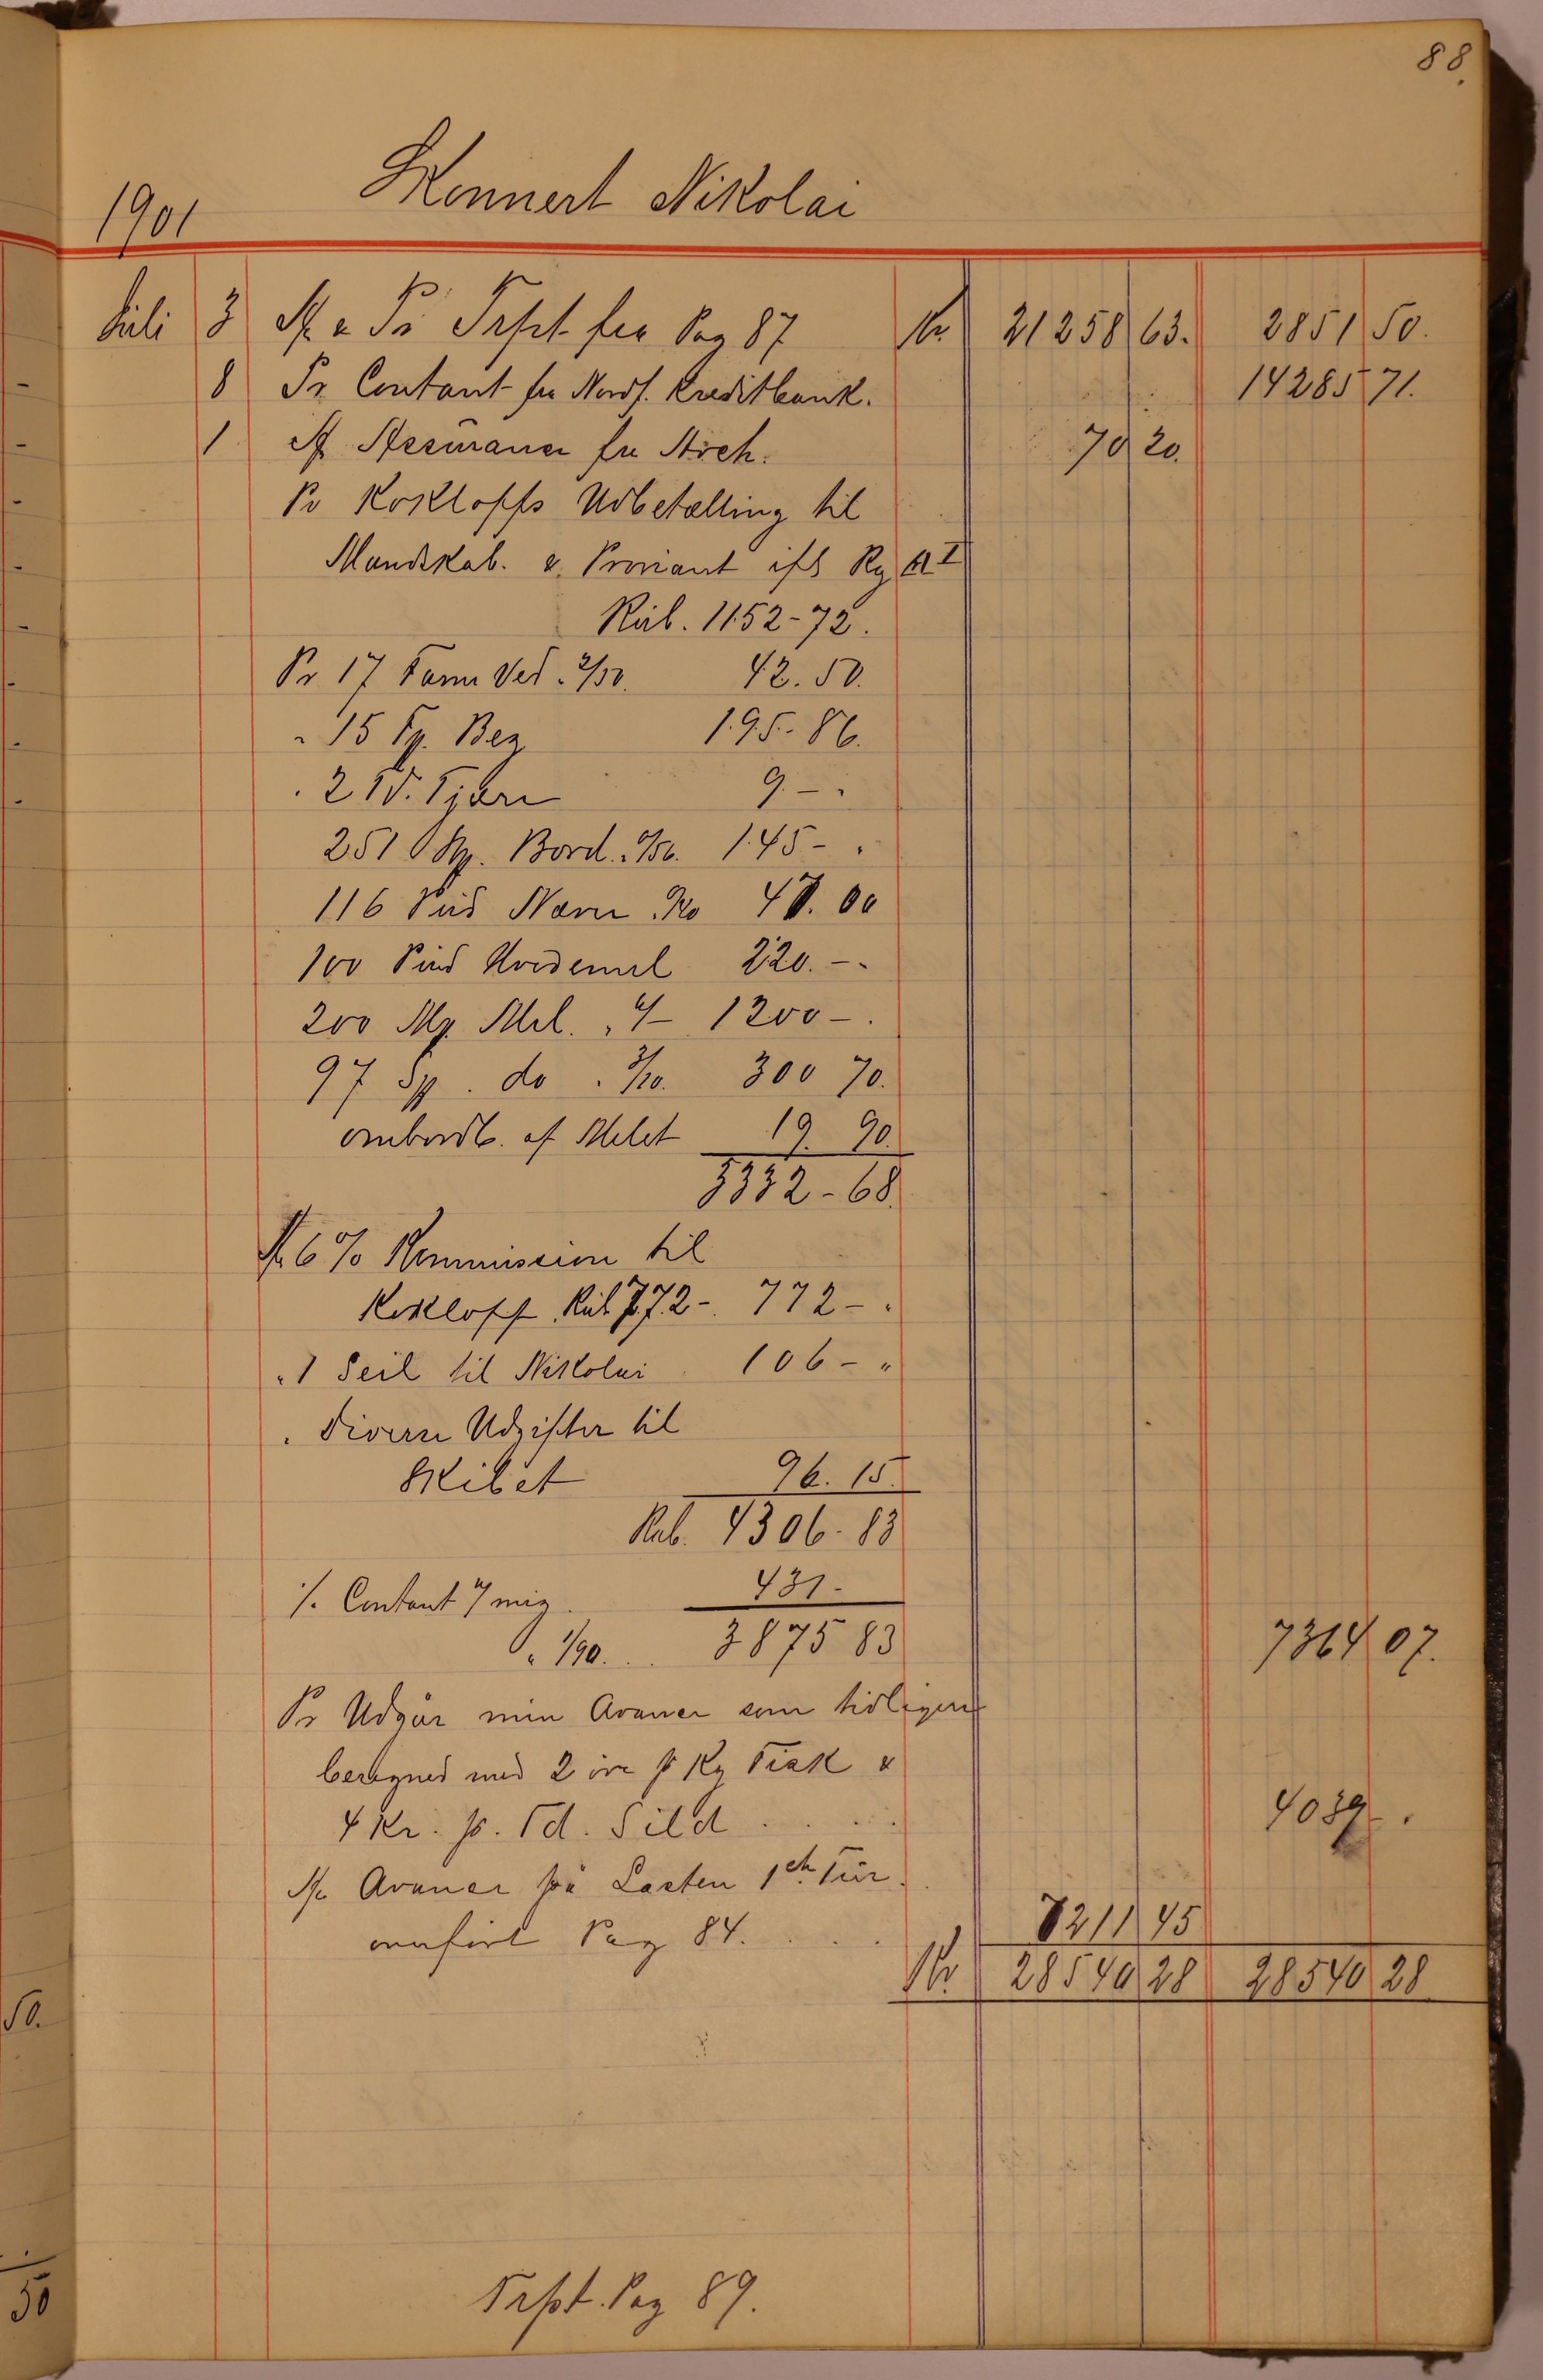 88.
1901 Skonnert Nikolai
Juli 3 Trpt. fra Pag 87 Kr. 21258 63. 2851 50.
8 Pr Contant fra Nordl. Kreditbank. 14285 71.
1 Assurance fra Arch. 70 20.
Pr Kokloffs Udbetalling til
Mandskab. & Proviant ifl Rg A I
Rub. 1152-72.
Pr 17 Favn Ved . 2/50. 42. 50.
" 15 Beg 195. 86.
. 2 Td. Tjære 9. - .
251 Bord . 145 - .
116 Pud Næver 00
100 Pud Hvedemel 220. - -
200 Mel. " 6/- 1200 - .
97 do . 3/10. 300 70.
ombordb. af Melet 19. 90.
3332 - 68.
6 % Kommission til
Kokloff Rub. 772 -. 772 - .
" 1 Seil til Nikolai 106 - "
. Diverse Udgifter til
Skibet 96. 15.
Rub. 4306 - 83
./. Contant 431 -
" 1/90. . . 3875 83 7364 07.
Pr Udgår min Avance som tidligere
beregned med 2 øre pr Kg Fisk &
4 Kr. p. Td. Sild . . . . 4039 - .
Avance på Lasten 1ste Tur.
overført Pag 84. . . . 7211 45
Kr. 28540 28 28540 28
50.
50
Trpt. Pag 89.